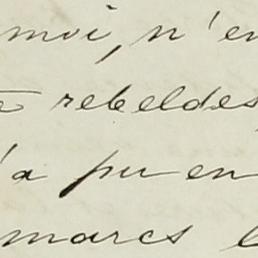 moi, n'en
rebeldes,
'a pu en
marcs